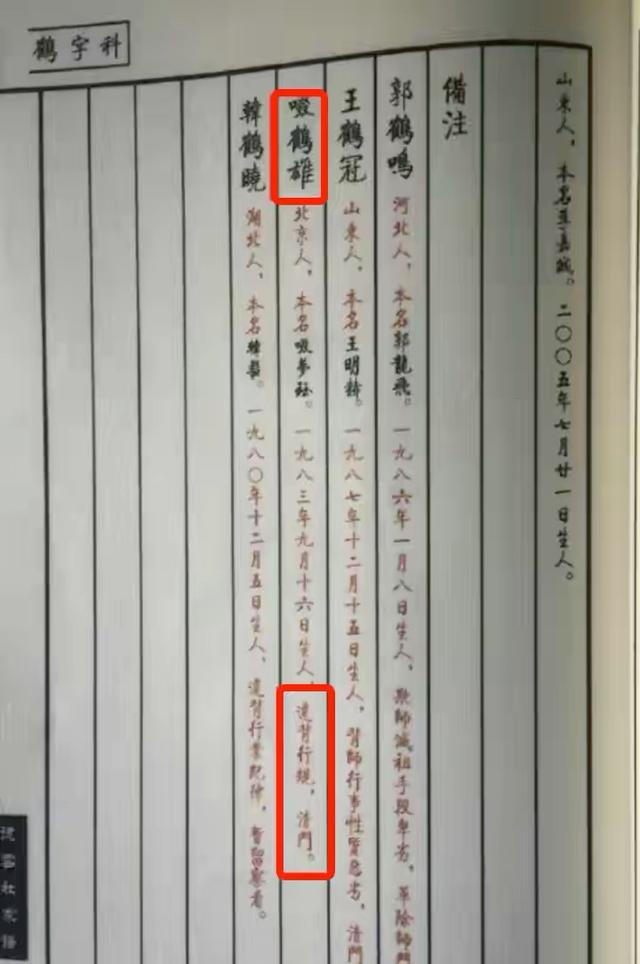 鶴字科
山東人，本名嘉。二〇〇五年七月廿一日生人。
備注
郭鶴鳴 河北人，本名郭龍飛。一九八六年一月八日生人，欺師滅祖手段卑劣，革除師門
王鶴冠 山東人，本名王明。一九八七年十二月十五日生人，背師行事性質惡劣，清門
啜鶴雄 北京人，本名啜夢。一九八三年九月十六日生人，違背行規，清門。
韓鶴曉 湖北人，本名韓。一九八〇年十二月五日生人，違背行業紀律，暫留察看。
德雲社家譜